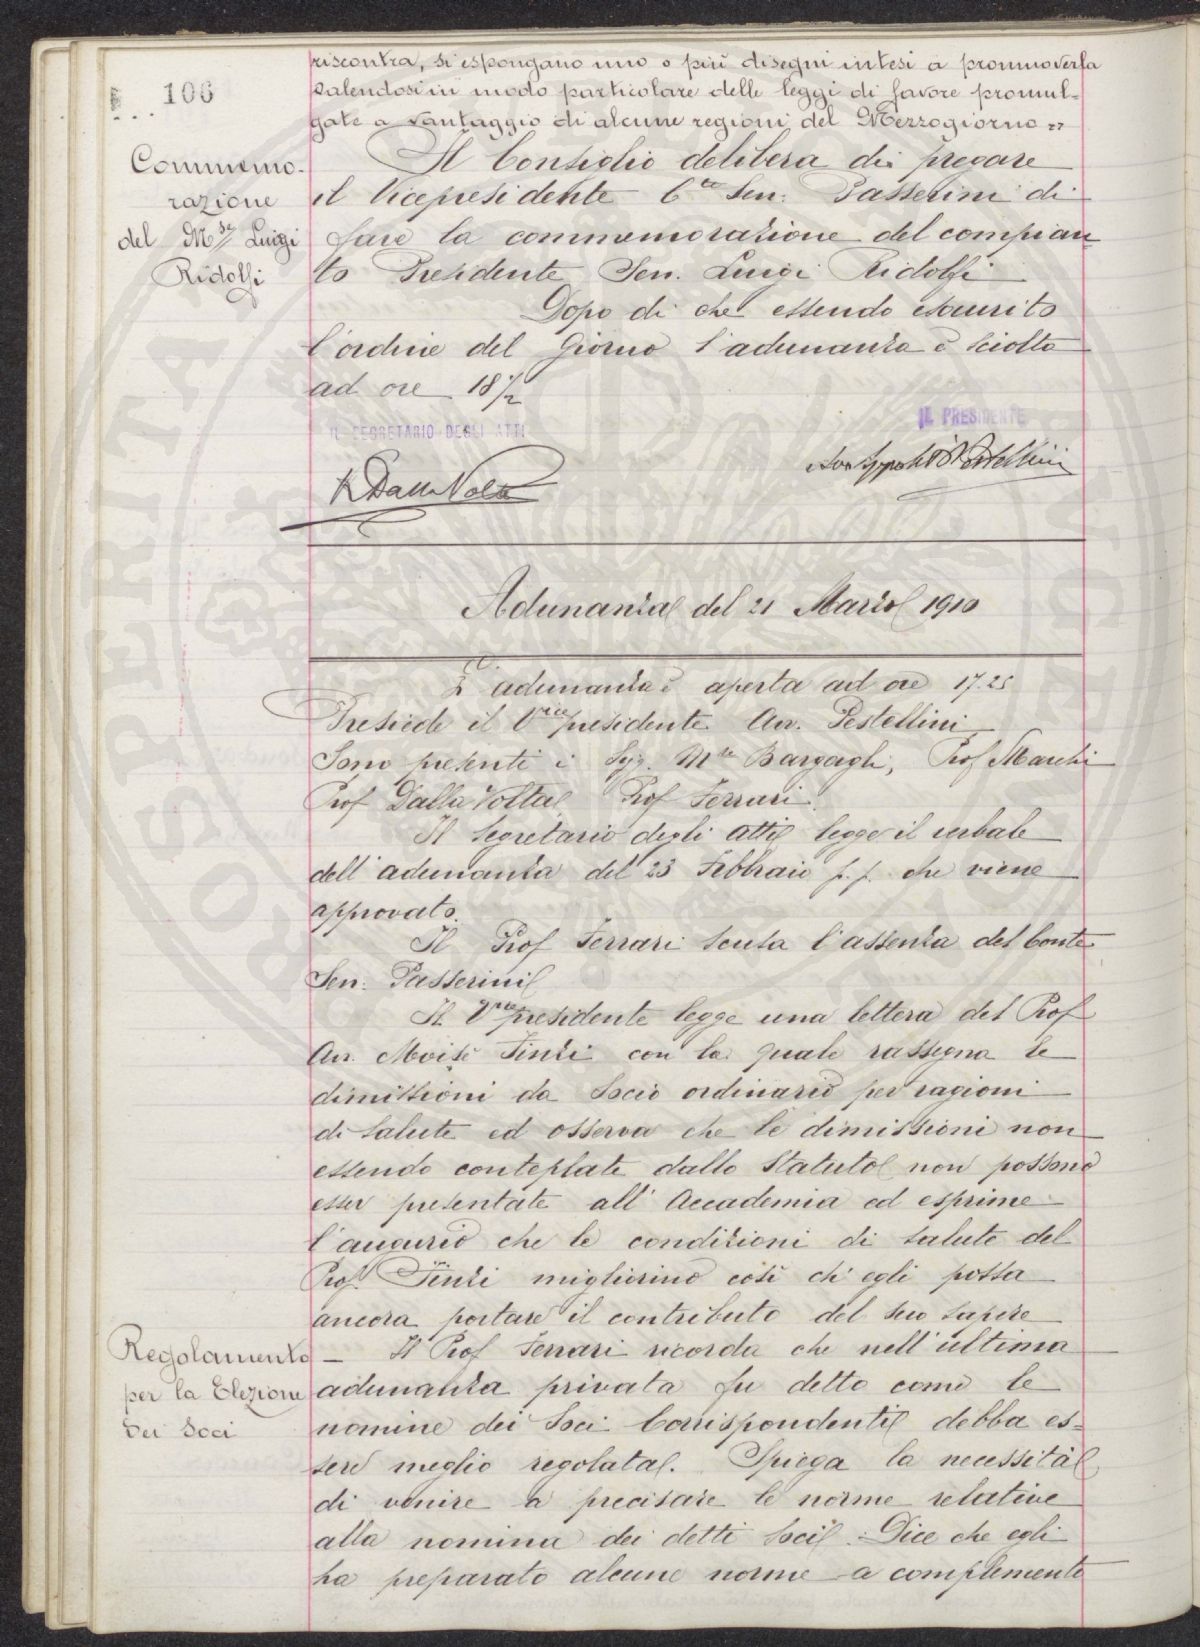 106
riscontra, si espongano uno o più disegni intesi a prommoverla
valendosi in modo particolare delle leggi di favore promul=
gate a vantaggio di alcune regioni del Mezzogiorno "
Commemo-
razione
del M.se Luigi
Ridolfi
Il Consiglio delibera di pregare
il Vicepresidente C.te Sen: Passerini di
fare la commemorazione del compian
to Presidente Sen. Luigi Ridolfi
Dopo di che essendo esaurito
l'ordine del Giorno l'adunanza è sciolta
ad ore 18 1/2
IL SEGRETARIO DEGLI ATTI
IL PRESIDENTE
R Dalla Volta
Avv Ippolito Pestellini
Adunanza del 21 Marzo 1910
L'adunanza è aperta ad ore 17.25
Presiede il Vicepresidente Avv. Pestellini
Sono presenti i Sigg. M.se Bargagli, Prof Marchi
Prof Dalla Volta Prof Ferrari.
Il Segretario degli atti legge il verbale
dell'adunanza del 23 Febbraio p.p. che viene
approvato.
Il Prof Ferrari scusa l'assenza del Conte
Sen: Passerini
Il Vicepresidente legge una lettera del Prof
Avv. Moisè Finzi con la quale rassegna le
dimissioni da Socio ordinario per ragioni
di salute ed osserva che le dimissioni non
essendo conteplate dallo Statuto non possono
esser presentate all'Accademia ed esprime
l'augurio che le condizioni di salute del
Prof. Finzi migliorino così ch'egli possa
ancora portare il contributo del suo sapere
Regolamento
per la Elezione
dei Soci
— Il Prof Ferrari ricorda che nell'ultima
adunanza privata fu detto come le
nomine dei Soci Corrispondenti debba es=
sere meglio regolata. Spiega la necessità
di venire a precisare le norme relative
alla nomina dei detti Soci. Dice che egli
ha preparato alcune norme a complemento